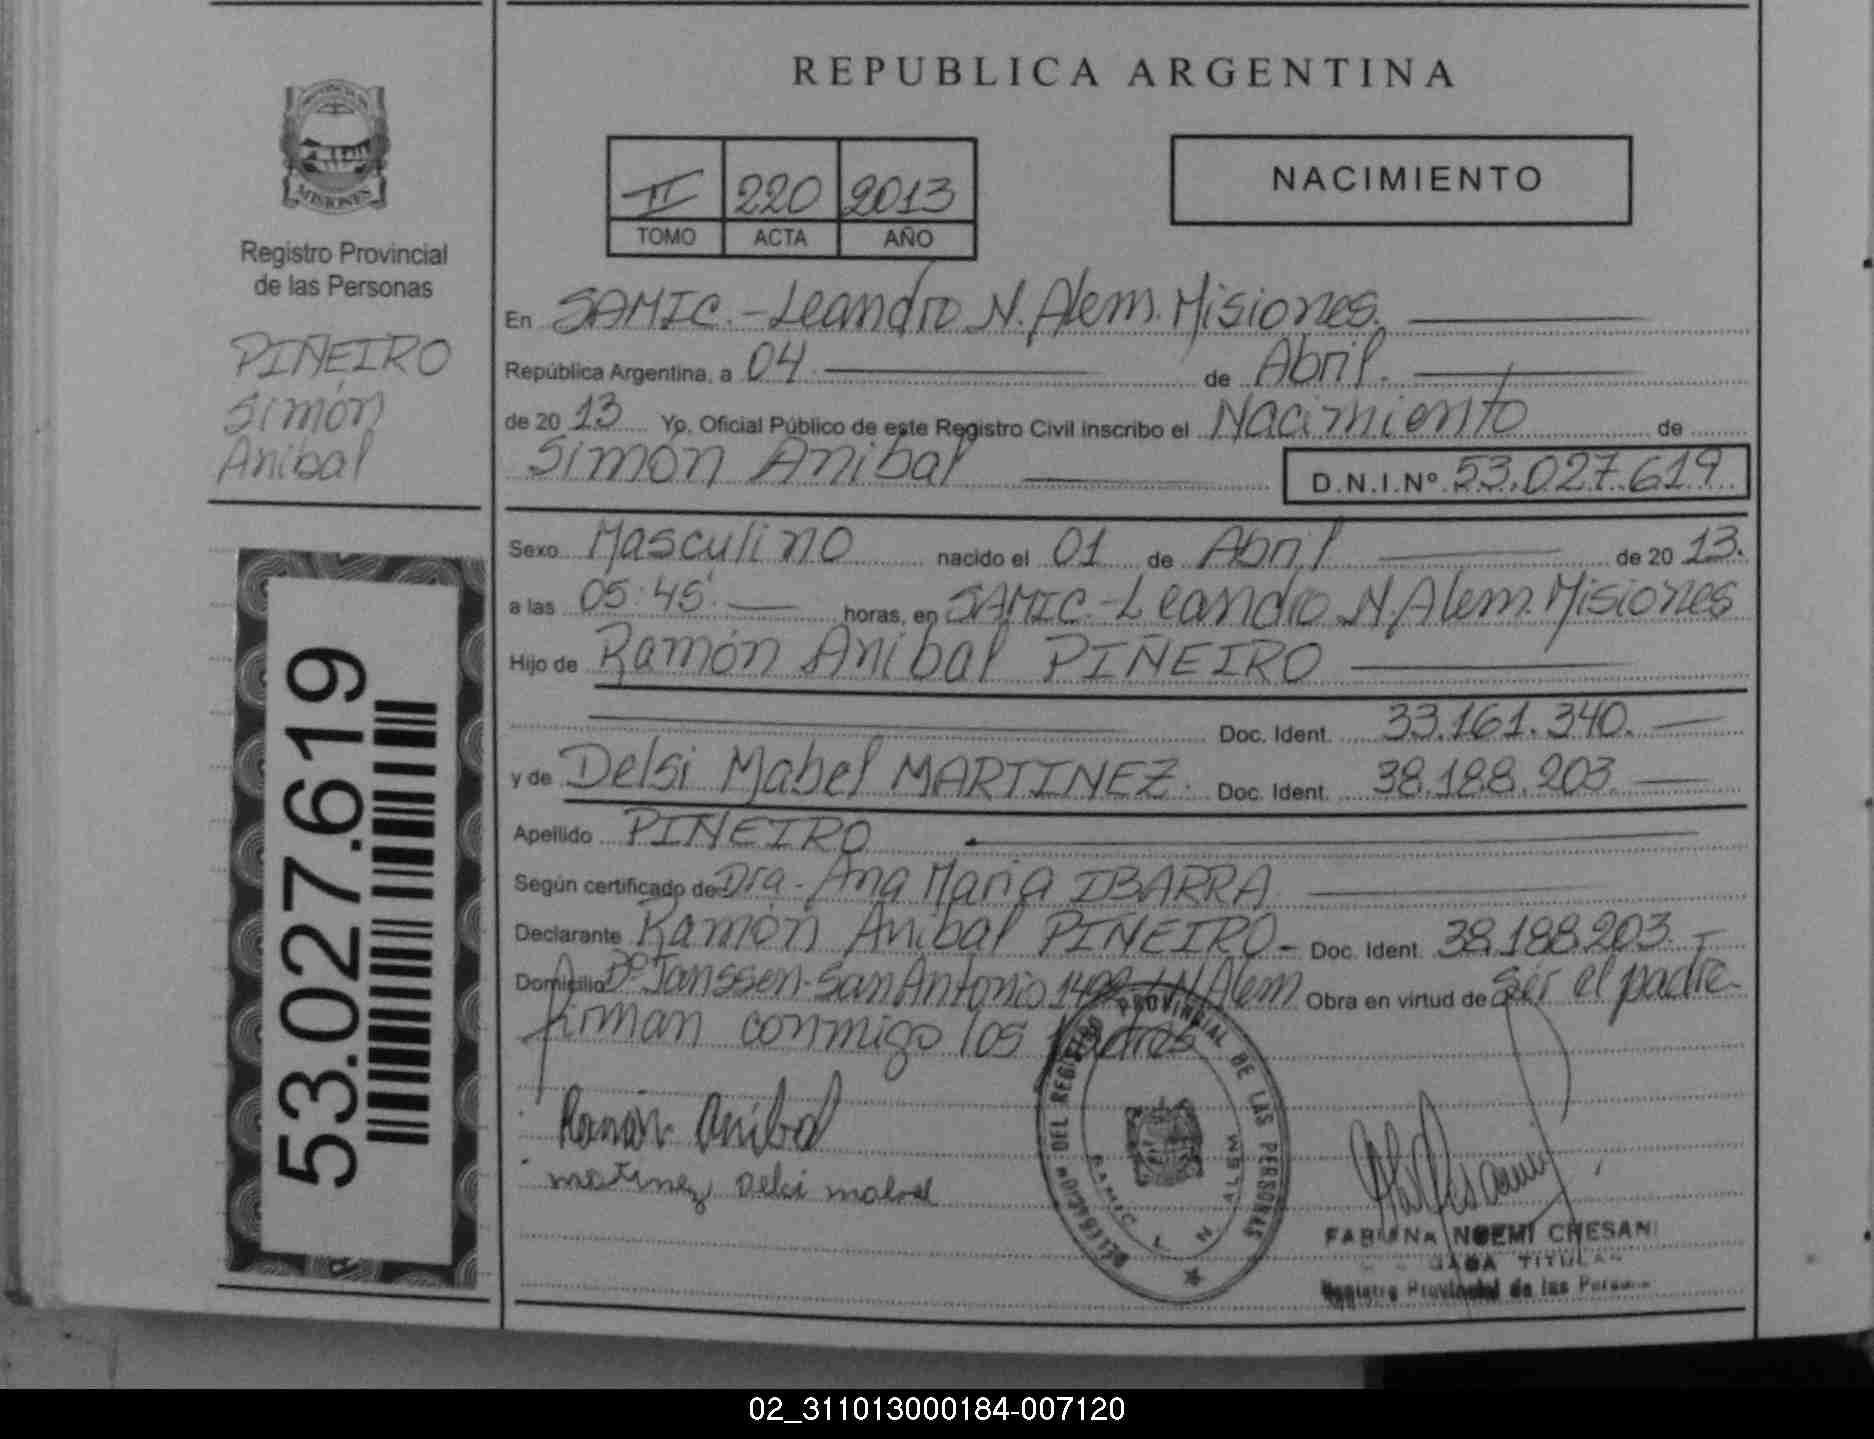 REPUBLICA ARGENTINA
MISIONES
Registro Provincial
de las Personas
PIÑEIRO
Simón
Anibal
53.027.619
II 220 2013
TOMO ACTA AÑO
NACIMIENTO
En SAMIC.-Leandro N. Alem. Misiones.
República Argentina, a 04 de Abril.
de 20 13 Yo, Oficial Público de este Registro Civil inscribo el Nacimiento de
Simón Anibal D.N.I.Nº 53.027.619
Sexo Masculino nacido el 01 de Abril de 20 13.
a las 05:45' horas, en SAMIC.-Leandro N. Alem. Misiones
Hijo de Ramón Anibal PIÑEIRO
Doc. Ident. 33.161.340.
y de Delsi Mabel MARTINEZ. Doc. Ident. 38.188.203.
Apellido PIÑEIRO
Según certificado de Dra. Ana Maria IBARRA
Declarante Ramón Anibal PIÑEIRO- Doc. Ident. 38.188.203.-
Domicilio Bº Janssen-San Antonio L N Alem Obra en virtud de Ser el padre.
firman conmigo los Padres
Ramón Anibal
martinez Delsi mabel
DELEGACION DEL REGISTRO PROVINCIAL DE LAS PERSONAS
SAMIC L N ALEM
FABIANA NOEMI CHESANI
TITULAR
Registro Provincial de las Personas
02_311013000184-007120